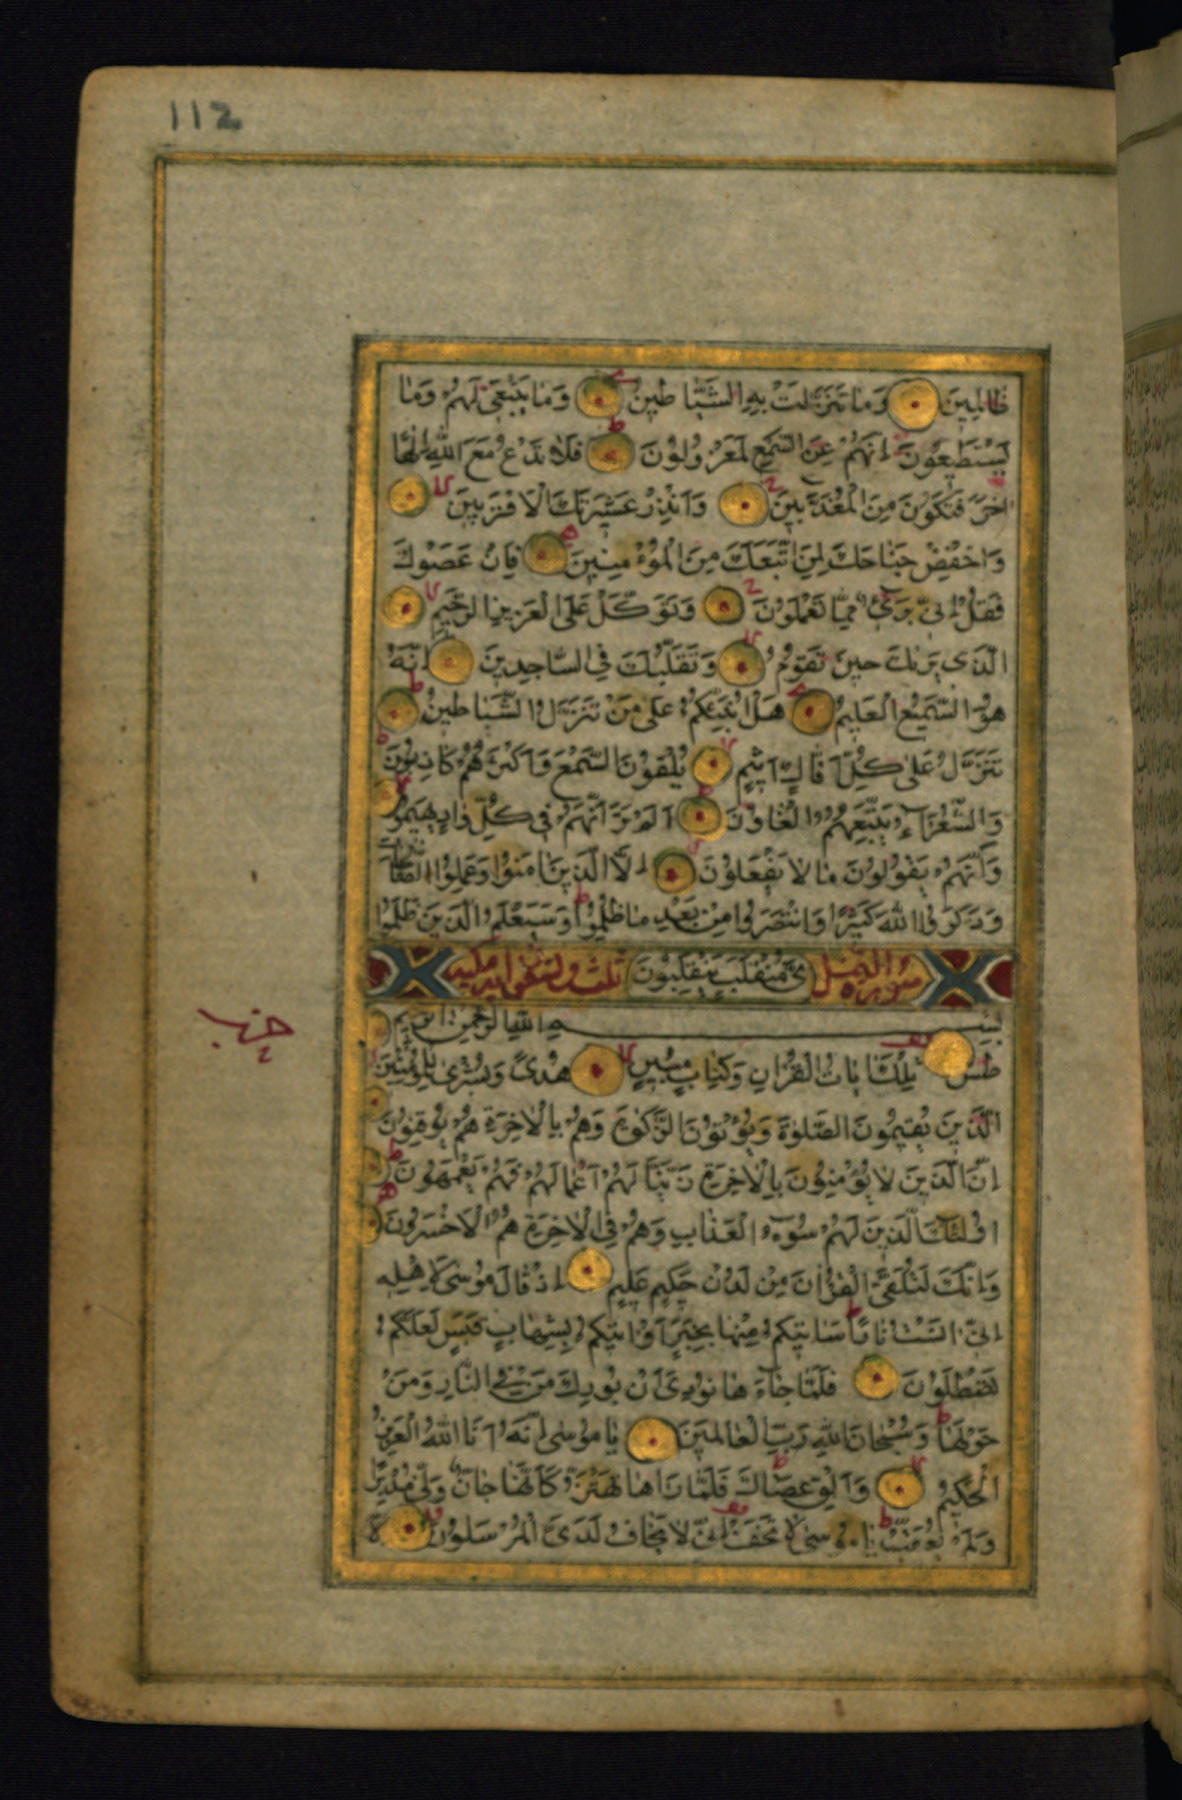 112
ظالِمِينَ وَمَا تَنَزَّلَتْ بِهِ الشَّيَاطِينُ وَمَا يَنْبَغِي لَهُمْ وَمَا
يَسْتَطِيعُونَ اِنَّهُمْ عَنِ السَّمْعِ لَمَعْزُولُونَ فَلَا تَدْعُ مَعَ اللّٰهِ اِلٰهًا
اٰخَرَ فَتَكُونَ مِنَ الْمُعَذَّبِينَ وَاَنْذِرْ عَشِيرَتَكَ الْاَقْرَبِينَ
وَاخْفِضْ جَنَاحَكَ لِمَنِ اتَّبَعَكَ مِنَ الْمُؤْمِنِينَ فَاِنْ عَصَوْكَ
فَقُلْ اِنِّي بَرِيءٌ مِمَّا تَعْمَلُونَ وَتَوَكَّلْ عَلَى الْعَزِيزِ الرَّحِيمِ
الَّذِي يَرٰىكَ حِينَ تَقُومُ وَتَقَلُّبَكَ فِي السَّاجِدِينَ اِنَّهُ
هُوَ السَّمِيعُ الْعَلِيمُ هَلْ اُنَبِّئُكُمْ عَلٰى مَنْ تَنَزَّلُ الشَّيَاطِينُ
تَنَزَّلُ عَلٰى كُلِّ اَفَّاكٍ اَثِيمٍ يُلْقُونَ السَّمْعَ وَاَكْثَرُهُمْ كَاذِبُونَ
وَالشُّعَرَاءُ يَتَّبِعُهُمُ الْغَاوُنَ اَلَمْ تَرَ اَنَّهُمْ فِي كُلِّ وَادٍ يَهِيمُونَ
وَاَنَّهُمْ يَقُولُونَ مَا لَا يَفْعَلُونَ اِلَّا الَّذِينَ اٰمَنُوا وَعَمِلُوا الصَّالِحَاتِ
وَذَكَرُوا اللّٰهَ كَثِيرًا وَانْتَصَرُوا مِنْ بَعْدِ مَا ظُلِمُوا وَسَيَعْلَمُ الَّذِينَ ظَلَمُوا
سورة النمل اَيَّ مُنْقَلَبٍ يَنْقَلِبُونَ ثلث وتسعون آية مكية
بِسْمِ اللّٰهِ الرَّحْمٰنِ الرَّحِيمِ
حزب
طٰسٓ تِلْكَ اٰيَاتُ الْقُرْاٰنِ وَكِتَابٍ مُبِينٍ هُدًى وَبُشْرٰى لِلْمُؤْمِنِينَ
الَّذِينَ يُقِيمُونَ الصَّلٰوةَ وَيُؤْتُونَ الزَّكٰوةَ وَهُمْ بِالْاٰخِرَةِ هُمْ يُوقِنُونَ
اِنَّ الَّذِينَ لَا يُؤْمِنُونَ بِالْاٰخِرَةِ زَيَّنَّا لَهُمْ اَعْمَالَهُمْ فَهُمْ يَعْمَهُونَ
اُولٰئِكَ الَّذِينَ لَهُمْ سُوءُ الْعَذَابِ وَهُمْ فِي الْاٰخِرَةِ هُمُ الْاَخْسَرُونَ
وَاِنَّكَ لَتُلَقَّى الْقُرْاٰنَ مِنْ لَدُنْ حَكِيمٍ عَلِيمٍ اِذْ قَالَ مُوسٰى لِاَهْلِهِ
اِنِّي اٰنَسْتُ نَارًا سَاٰتِيكُمْ مِنْهَا بِخَبَرٍ اَوْ اٰتِيكُمْ بِشِهَابٍ قَبَسٍ لَعَلَّكُمْ
تَصْطَلُونَ فَلَمَّا جَاءَهَا نُودِيَ اَنْ بُورِكَ مَنْ فِي النَّارِ وَمَنْ
حَوْلَهَا وَسُبْحَانَ اللّٰهِ رَبِّ الْعَالَمِينَ يَا مُوسٰى اِنَّهُ اَنَا اللّٰهُ الْعَزِيزُ
الْحَكِيمُ وَاَلْقِ عَصَاكَ فَلَمَّا رَاٰهَا تَهْتَزُّ كَاَنَّهَا جَانٌّ وَلّٰى مُدْبِرًا
وَلَمْ يُعَقِّبْ يَا مُوسٰى لَا تَخَفْ اِنِّي لَا يَخَافُ لَدَيَّ الْمُرْسَلُونَ